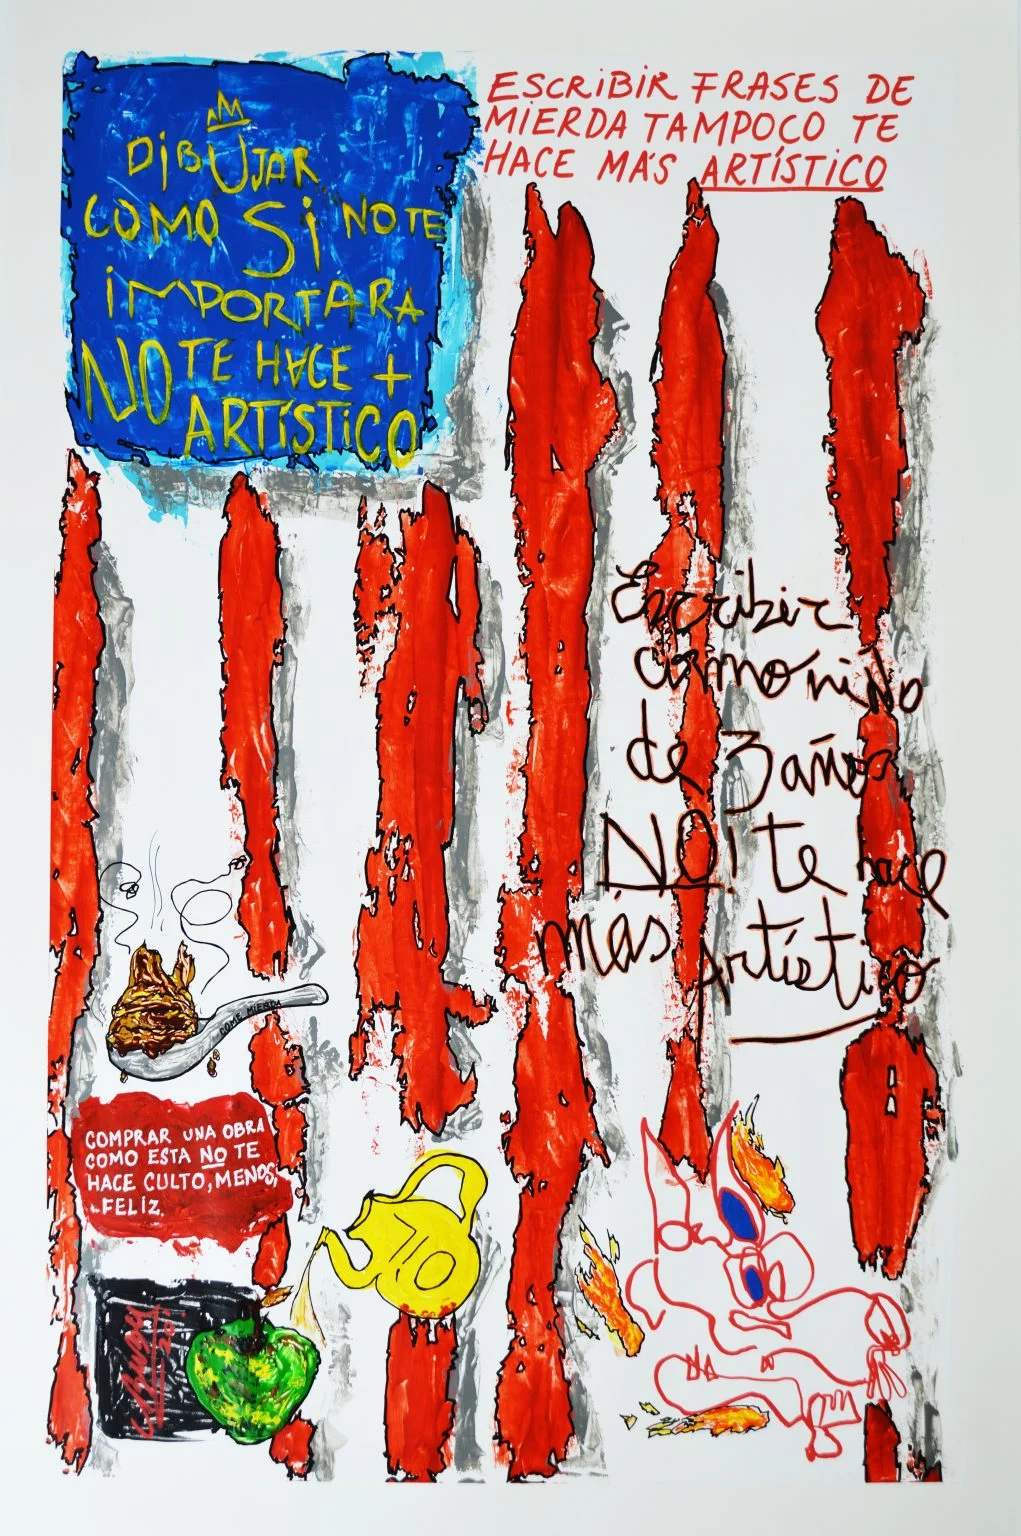 DiBUJAR
COMO Si NO TE
iMPORTARA
NO TE HACE +
ARTÍSTiCO
ESCRiBiR FRASES DE
MiERDA TAMPOCO TE
HACE MÁS ARTÍSTiCO
Escribir
como niño
de 3 años
NO! te hace
más
Artístico
COME MIERDA
COMPRAR UNA OBRA
COMO ESTA NO TE
HACE CULTO, MENOS,
FELÍZ.